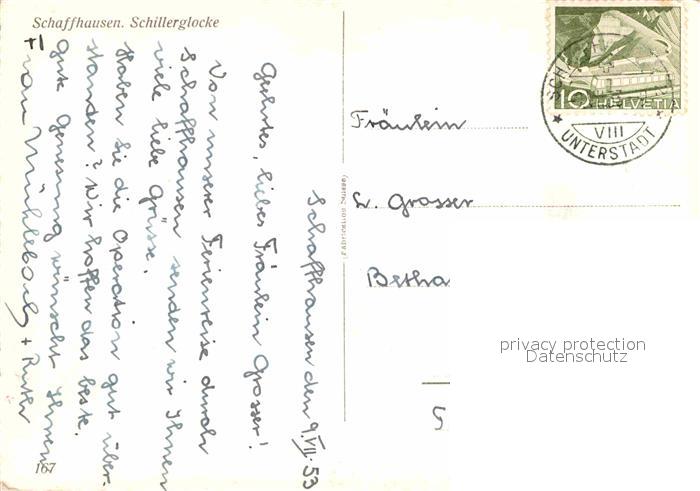 Schaffhausen. Schillerglocke
Schaffhausen den 9.VII.53
Geehrtes, liebes Fräulein Grosser!
Von unserer Ferienreise durch
Schaffhausen senden wir Ihnen
viele liebe Grüsse.
Haben Sie die Operation gut über-
standen? Wir hoffen das beste.
Gute Genesung wünscht Ihnen
von Mühlebach + Ruth
167
(Fabrication Suisse)
10 HELVETIA
VIII
UNTERSTADT
Fräulein
L. Grosser
Betha
5
privacy protection
Datenschutz